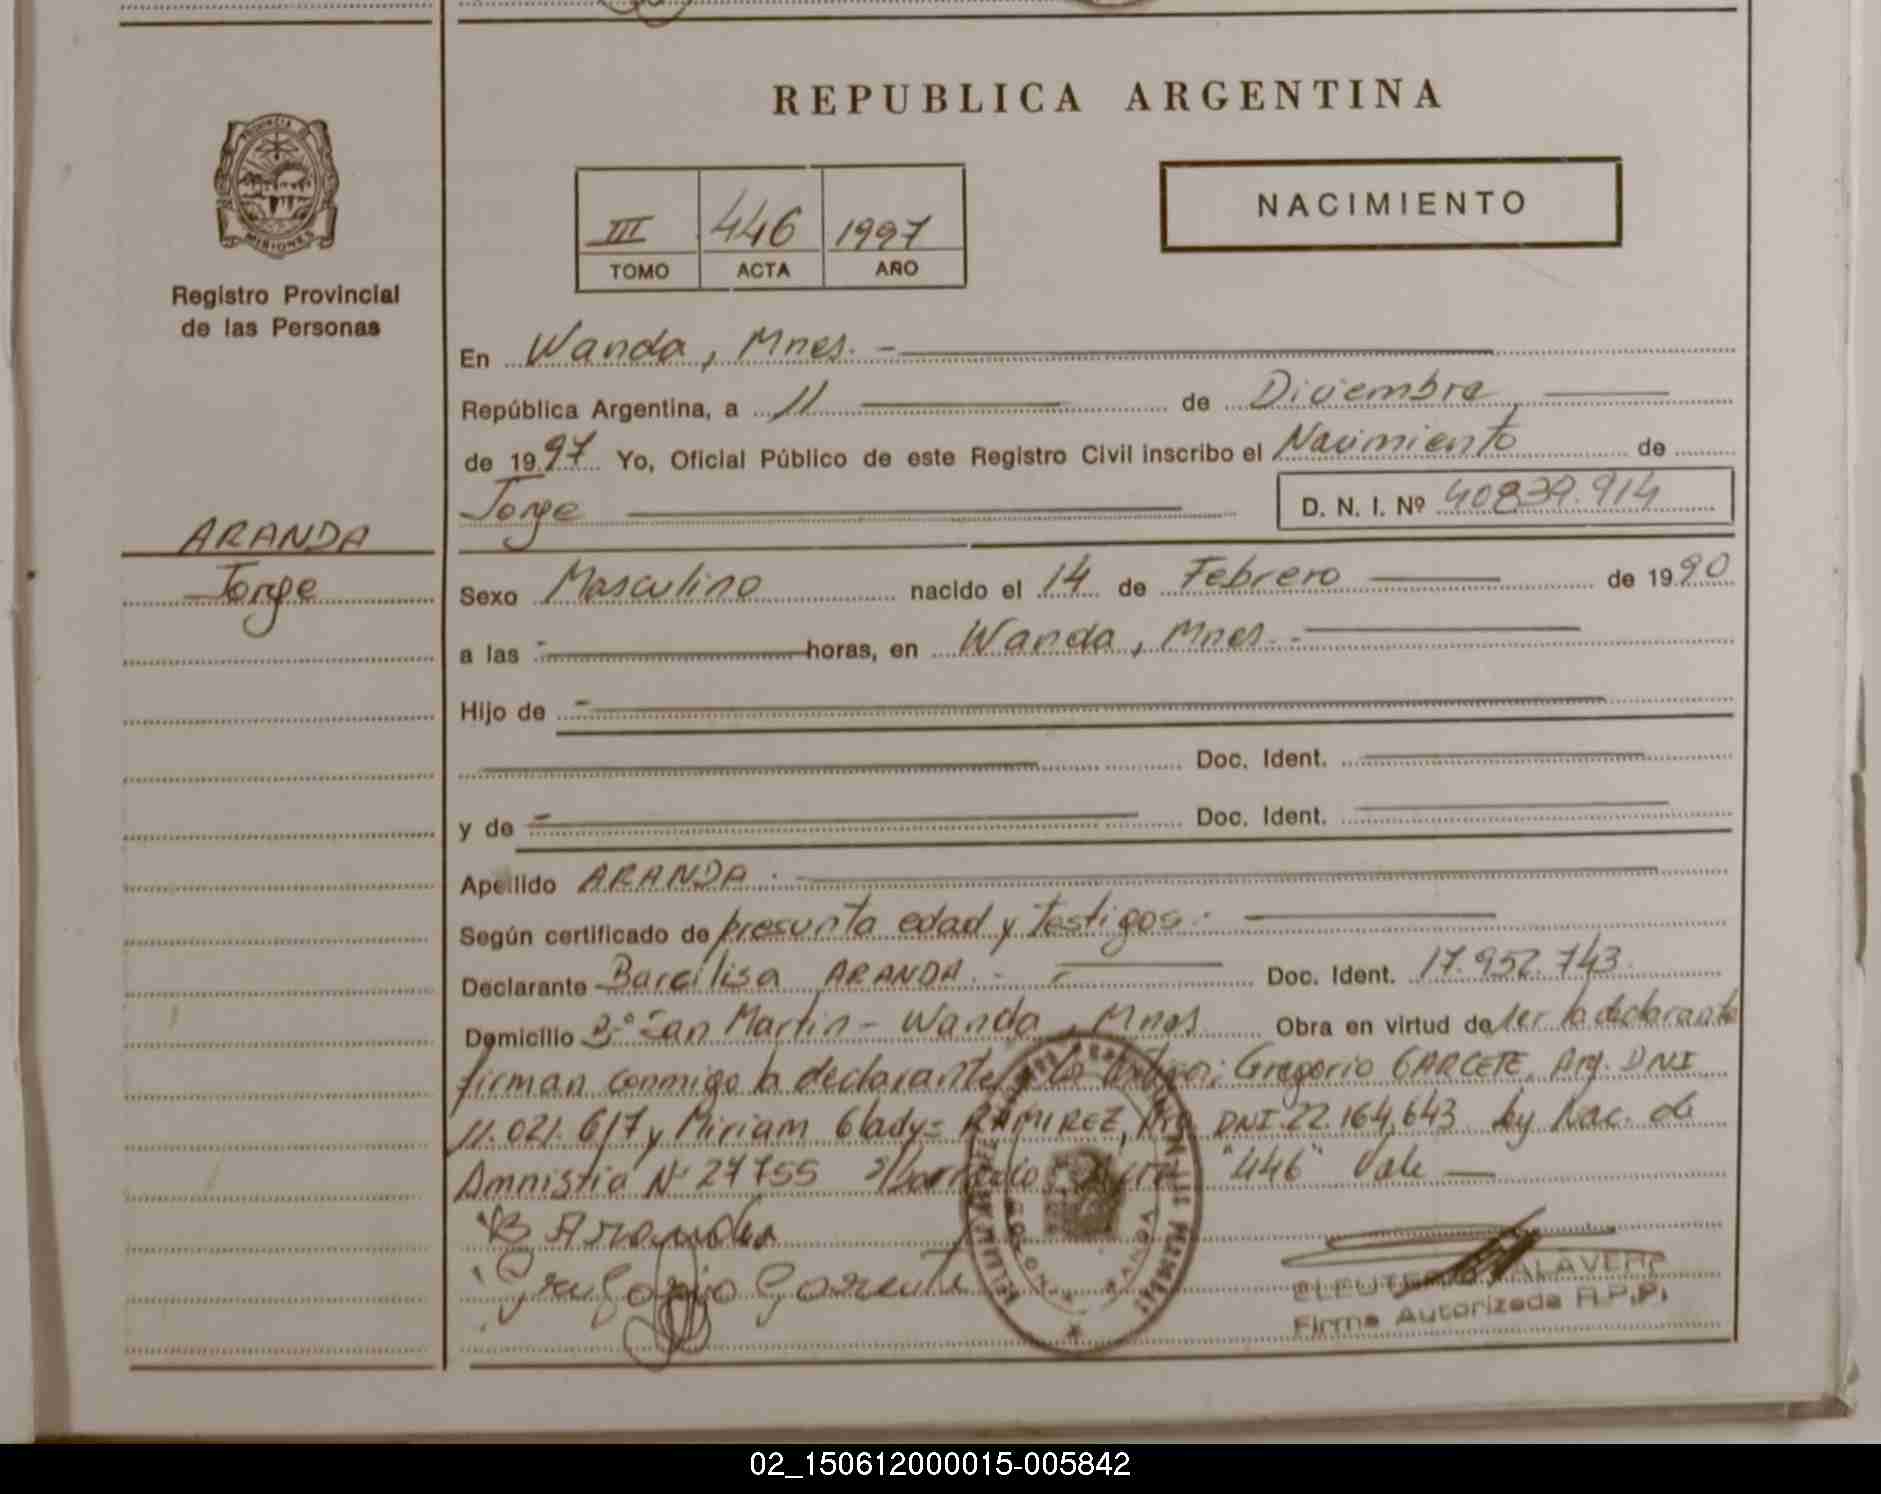 PROVINCIA DE
MISIONES
Registro Provincial
de las Personas
ARANDA
Jorge
REPUBLICA ARGENTINA
III 446 1997
TOMO ACTA AÑO
NACIMIENTO
En Wanda, Mnes. -
República Argentina, a 11 de Diciembre
de 1997 Yo, Oficial Público de este Registro Civil inscribo el Nacimiento de
Jorge D. N. I. Nº 40839.914
Sexo Masculino nacido el 14 de Febrero de 1990
a las - horas, en Wanda, Mnes. -
Hijo de -
Doc. Ident.
y de - Doc. Ident.
Apellido ARANDA.
Según certificado de presunta edad y testigos.
Declarante Barcilisa ARANDA. - Doc. Ident. 17.952.743.
Domicilio Bº San Martin - Wanda, Mnes Obra en virtud de ser la declarante
firman conmigo la declarante Gregorio GARCETE, Arg. DNI
11.021.617 y Miriam Gladys RAMIREZ, Arg DNI. 22.164.643 Ley Nac. de
Amnistia Nº 27755 S/borrado "446" Vale
B Aranda
WANDA
ELEUTERIO TALAVERA
Firma Autorizada R.P.P.
02_150612000015-005842